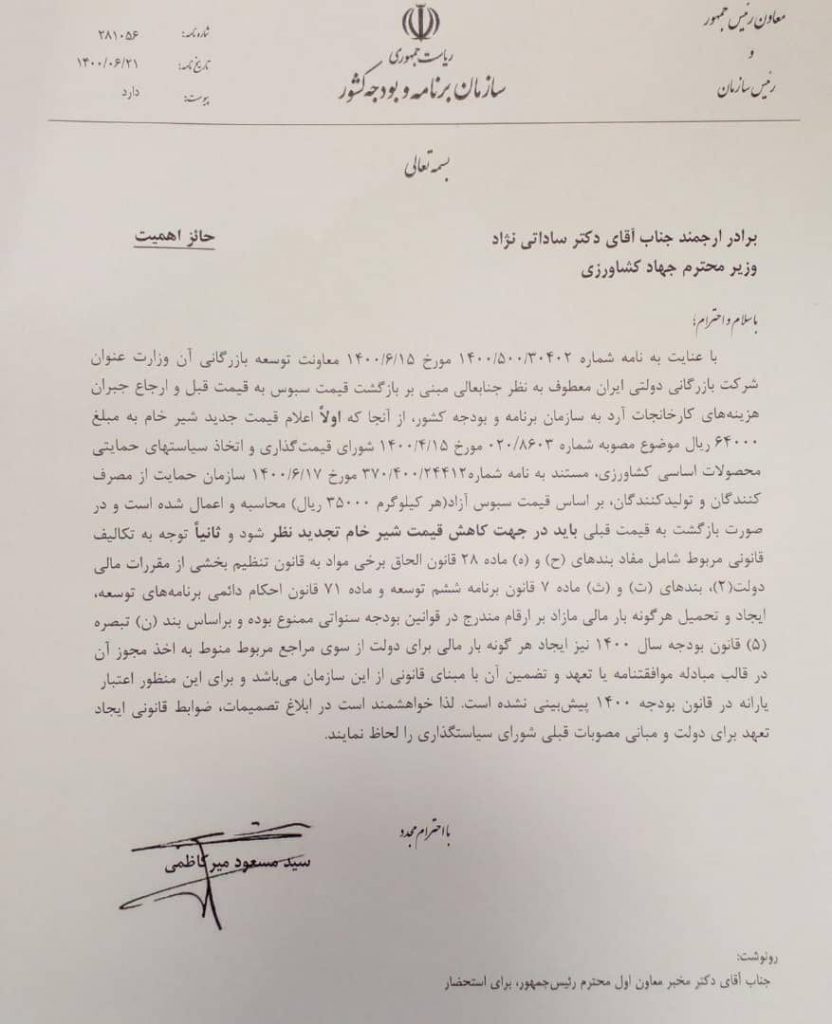 معاون رئیس جمهور
و
رئیس سازمان
ریاست جمهوری
سازمان برنامه و بودجه کشور
شماره نامه: ۲۸۱۰۵۶
تاریخ نامه: ۱۴۰۰/۰۶/۲۱
پیوست: دارد
بسمه تعالی
برادر ارجمند جناب آقای دکتر ساداتی نژاد
حائز اهمیت
وزیر محترم جهاد کشاورزی
با سلام و احترام؛
با عنایت به نامه شماره ۱۴۰۰/۵۰۰/۳۰۴۰۲ مورخ ۱۴۰۰/۶/۱۵ معاونت توسعه بازرگانی آن وزارت عنوان
شرکت بازرگانی دولتی ایران معطوف به نظر جنابعالی مبنی بر بازگشت قیمت سبوس به قیمت قبل و ارجاع جبران
هزینه‌های کارخانجات آرد به سازمان برنامه و بودجه کشور، از آنجا که اولاً اعلام قیمت جدید شیر خام به مبلغ
۶۴۰۰۰ ریال موضوع مصوبه شماره ۰۲۰/۸۶۰۳ مورخ ۱۴۰۰/۴/۱۵ شورای قیمت‌گذاری و اتخاذ سیاستهای حمایتی
محصولات اساسی کشاورزی، مستند به نامه شماره۳۷۰/۴۰۰/۲۴۴۱۲ مورخ ۱۴۰۰/۶/۱۷ سازمان حمایت از مصرف
کنندگان و تولیدکنندگان، بر اساس قیمت سبوس آزاد(هر کیلوگرم ۳۵۰۰۰ ریال) محاسبه و اعمال شده است و در
صورت بازگشت به قیمت قبلی باید در جهت کاهش قیمت شیر خام تجدید نظر شود و ثانیاً توجه به تکالیف
قانونی مربوط شامل مفاد بندهای (ح) و (ه) ماده ۲۸ قانون الحاق برخی مواد به قانون تنظیم بخشی از مقررات مالی
دولت(۲)، بندهای (ت) و (ث) ماده ۷ قانون برنامه ششم توسعه و ماده ۷۱ قانون احکام دائمی برنامه‌های توسعه،
ایجاد و تحمیل هرگونه بار مالی مازاد بر ارقام مندرج در قوانین بودجه سنواتی ممنوع بوده و براساس بند (ن) تبصره
(۵) قانون بودجه سال ۱۴۰۰ نیز ایجاد هر گونه بار مالی برای دولت از سوی مراجع مربوط منوط به اخذ مجوز آن
در قالب مبادله موافقتنامه یا تعهد و تضمین آن با مبنای قانونی از این سازمان می‌باشد و برای این منظور اعتبار
یارانه در قانون بودجه ۱۴۰۰ پیش‌بینی نشده است. لذا خواهشمند است در ابلاغ تصمیمات، ضوابط قانونی ایجاد
تعهد برای دولت و مبانی مصوبات قبلی شورای سیاستگذاری را لحاظ نمایند.
با احترام مجدد
سید مسعود میرکاظمی
رونوشت:
جناب آقای دکتر مخبر معاون اول محترم رئیس‌جمهور، برای استحضار